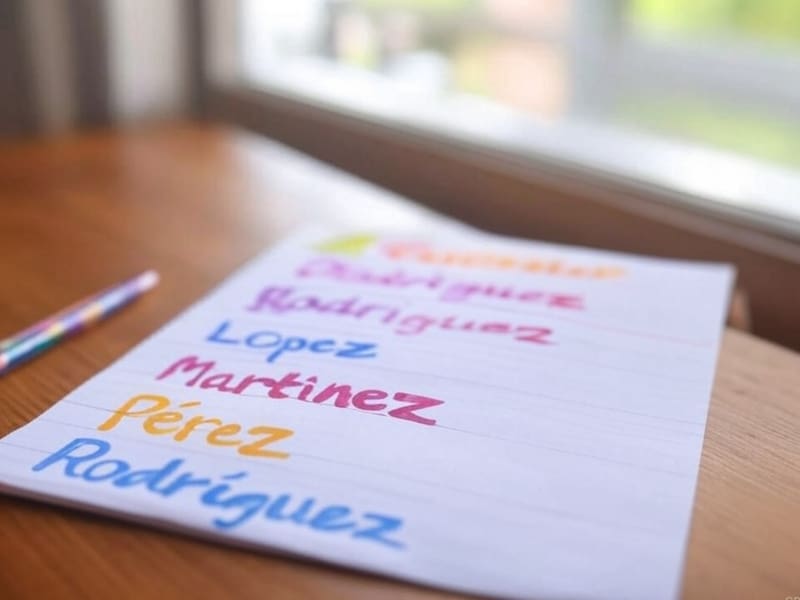 Rodriguez
Lopez
Martinez
Pérez
Rodríguez